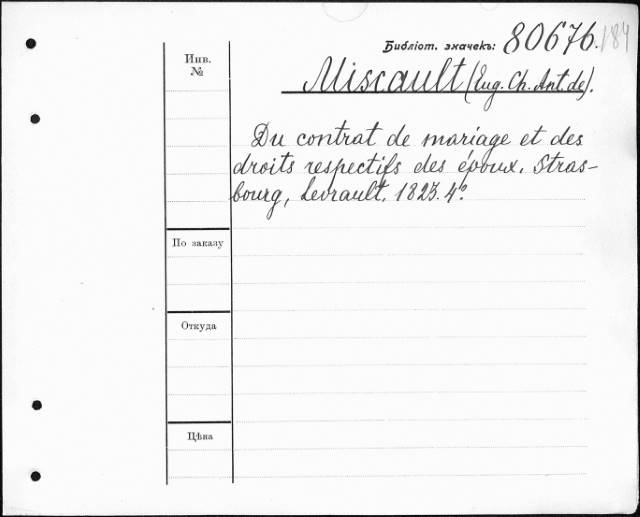 Библіот. значекъ: 80676. 184
Инв.
№
Miscault (Eug. Ch. Ant. de).
Du contrat de mariage et des
droits respectifs des époux. Stras-
bourg, Levrault. 1823. 4º
По заказу
Откуда
Цѣна